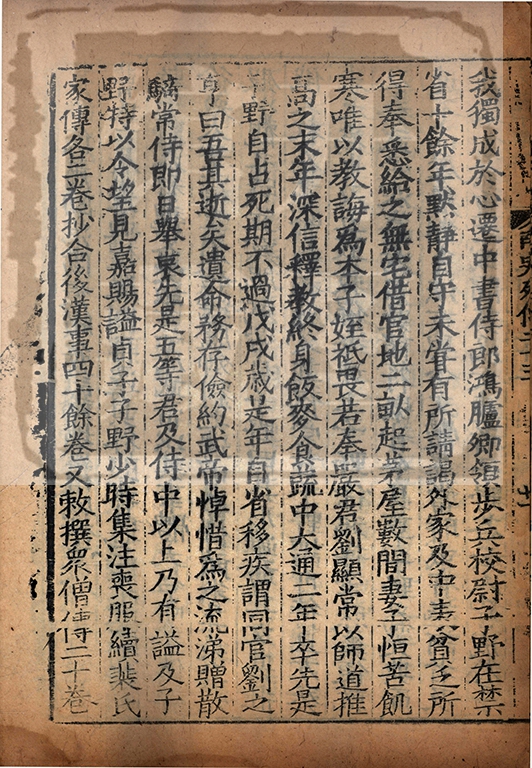 我獨成於心遷中書侍郎鴻臚卿領步兵校尉子野在禁
省十餘年默靜自守未甞有所請謁外家及中表貧乏所
得奉悉給之無宅借官地二畝起茅屋數間妻子恒苦飢
寒唯以教誨爲本子姪祗畏若奉嚴君劉顯常以師道推
高之末年深信釋教終身飯麥食蔬中大通二年卒先是
子野自占死期不過戊戌歲是年自省移疾謂同官劉之
亨曰吾其逝矣遺命務存儉約武帝悼惜爲之流涕贈散
騎常侍即日舉哀先是五等君及侍中以上乃有謚及子
野特以令望見嘉賜謚貞子子野少時集注喪服續裴氏
家傳各二卷抄合後漢事四十餘卷又敕撰衆僧傳二十卷